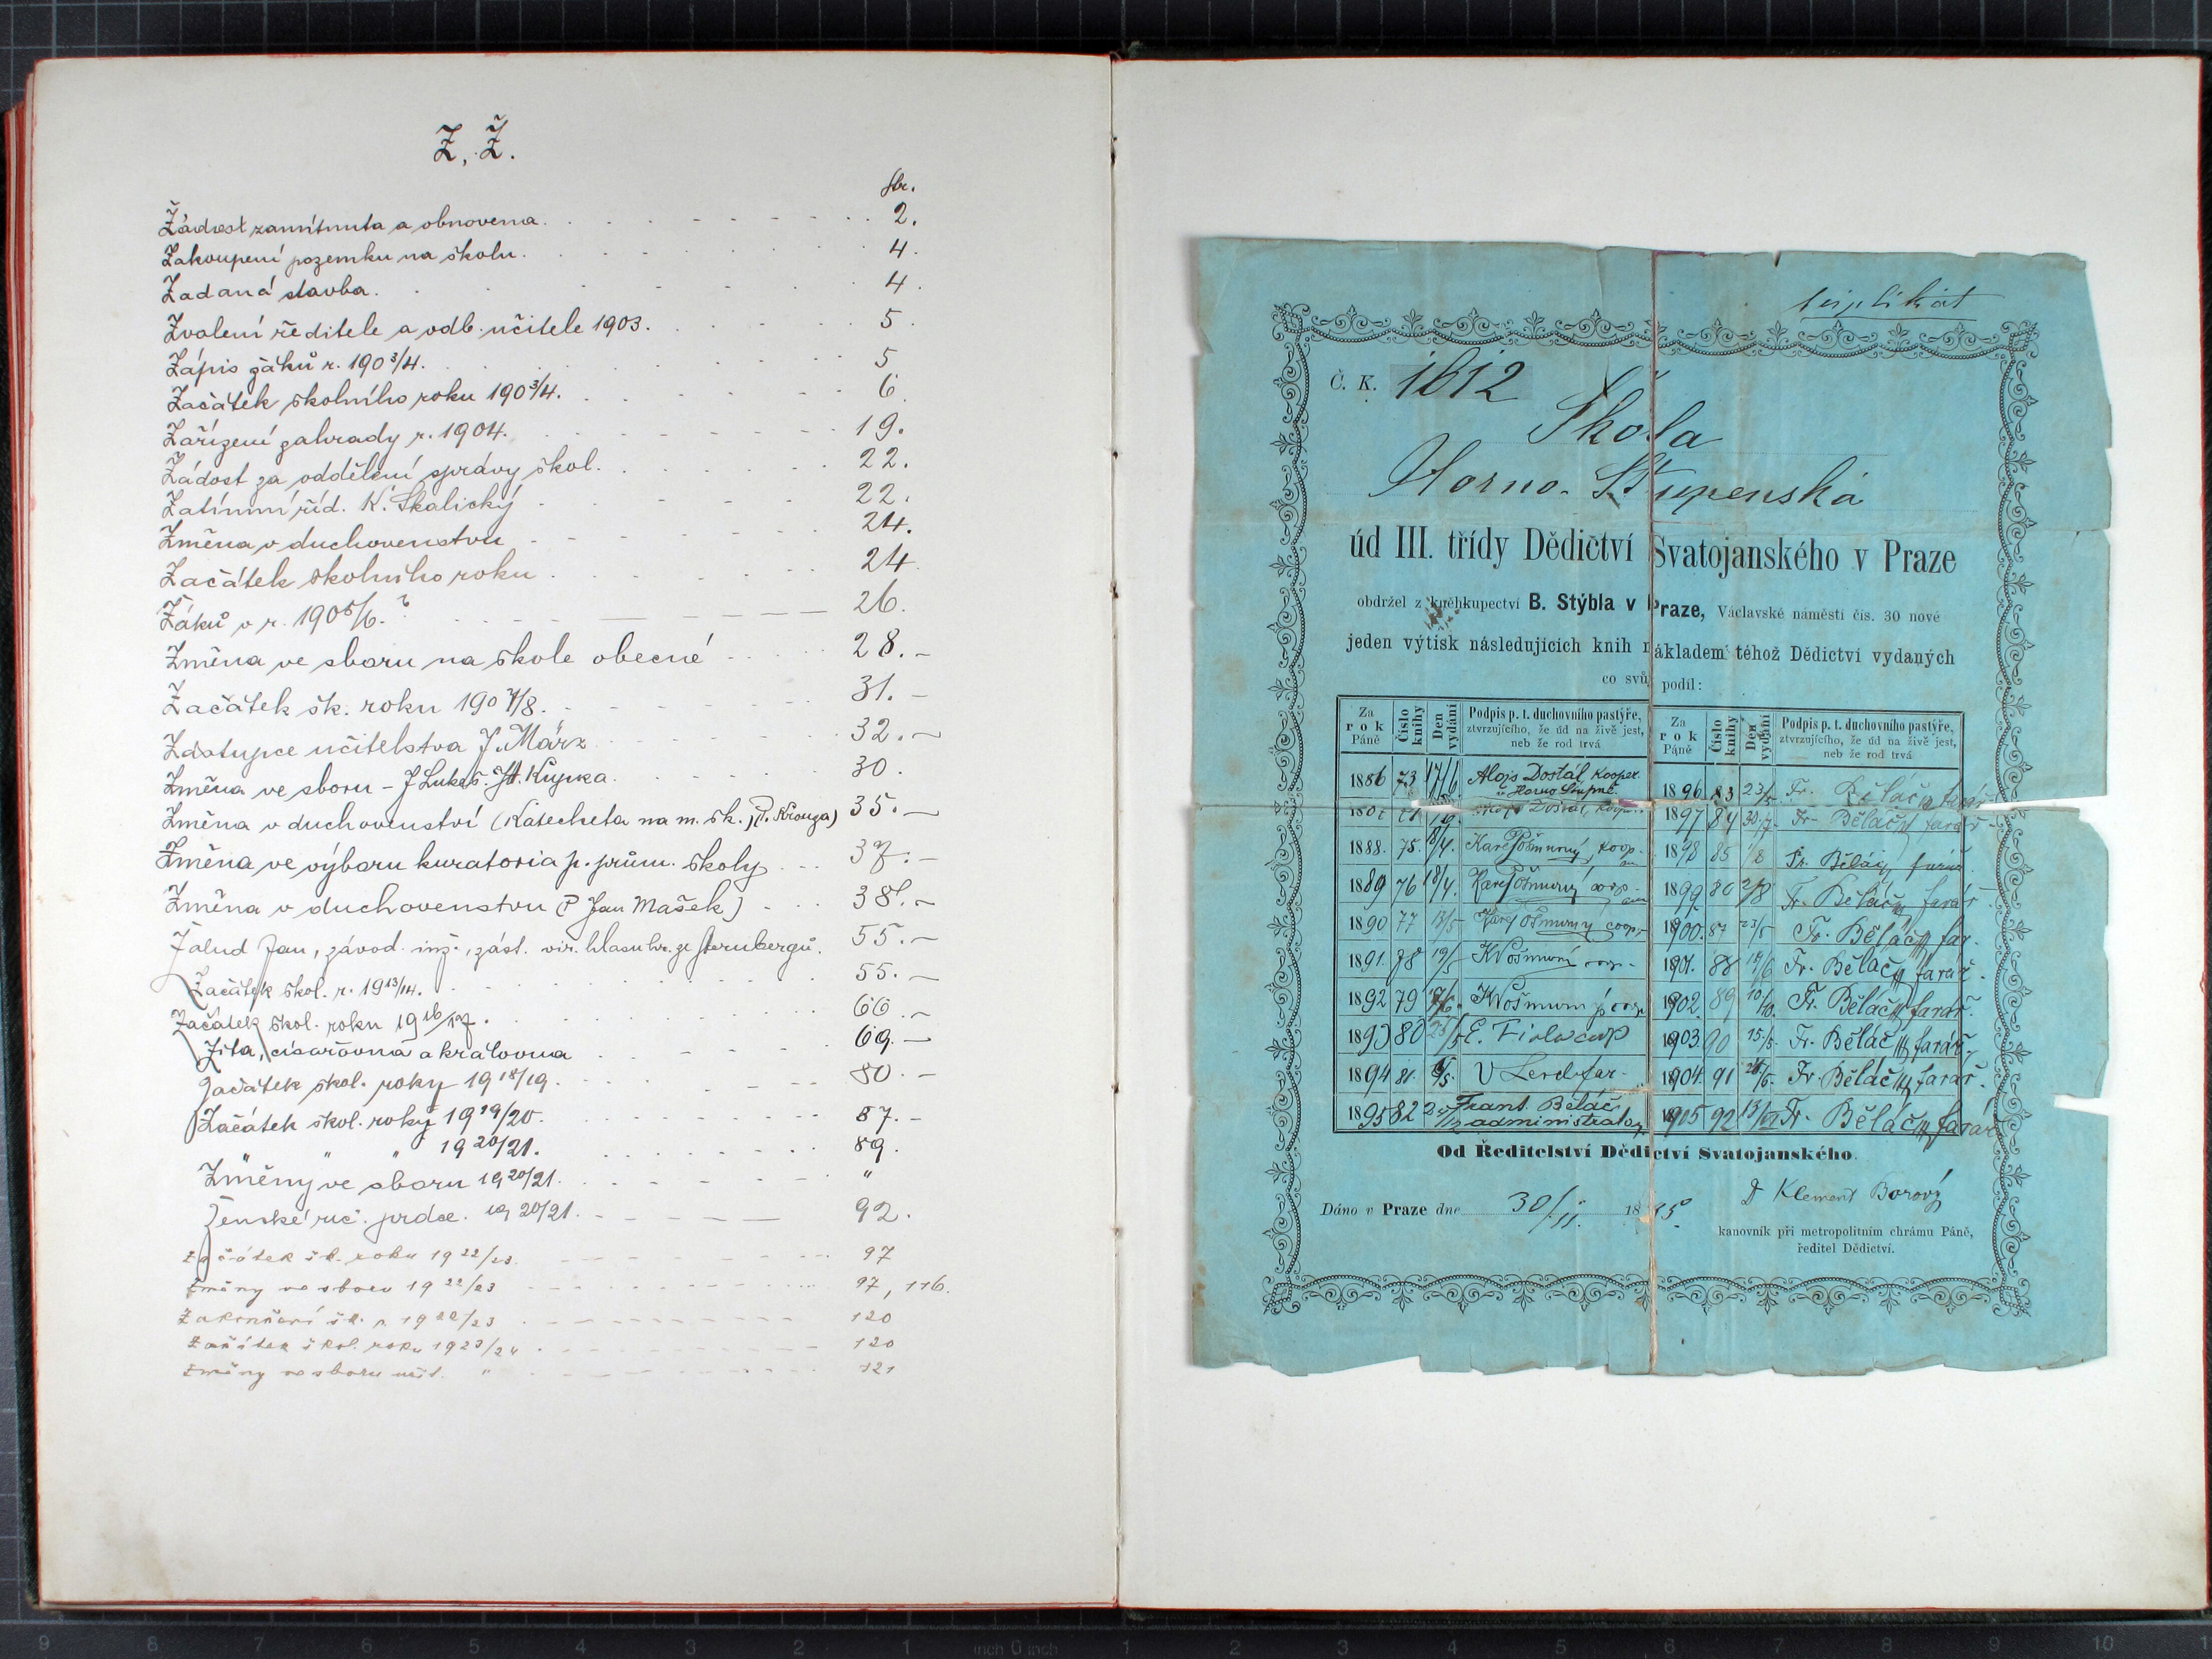 Z, Ž.
str.
Žádost zamítnuta a obnovena. 2.
Zakoupení pozemku na školu. 4.
Zadaná stavba. 4.
Zvolení ředitele a odb. učitele 1903. 5.
Zápis žáků r. 1903/4. 5
Začátek školního roku 1903/4. 6.
Zařízení zahrady r. 1904. 19.
Žádost za oddělení správy škol. 22.
Zatímní říd. K. Skalický 22.
Změna v duchovenstvu 24.
Začátek školního roku 24.
Žáků v r. 1905/6. 26.
Změna ve sboru na škole obecné 28.-
Začátek šk. roku 1907/8. 31.-
Zástupce učitelstva J. März 32.-
Změna ve sboru - J Lukeš. Kupka. 30.
Změna v duchovenství (Katecheta na m. šk. P. Krouza) 35.-
Změna ve výboru kuratoria p. prům. školy 37.-
Změna v duchovenstvu (P Jan Mašek) 38.-
Žalud Jan, závod. inž., zást. vir. hlasu hr. ze Sternbergů. 55.-
Začátek škol. r. 1913/14. 55.-
Začátek škol. roku 1916/17. 66.-
Zita, císařovna a královna 69.-
Začátek škol. roky 1918/19. 80.-
Začátek škol. roky 1919/20. 87.-
" " " 1920/21. 89.
Změny ve sboru 1920/21. "
Ženské ruč. práce. 1920/21. 92.
Začátek šk. roku 1922/23. 97
Změny ve sboru 1922/23 97, 116.
Zakončení šk. r. 1922/23 120
Začátek škol. roku 1923/24. 120
Změny ve sboru učit. " 121
Č. K. 1612
Škola
Horno-Stupenská
úd III. třídy Dědictví Svatojanského v Praze
obdržel z kněhkupectví B. Stýbla v Praze, Václavské náměstí čís. 30 nové
jeden výtisk následujících knih nákladem téhož Dědictví vydaných
co svůj podíl:
Za rok Páně | Číslo knihy | Den vydání | Podpis p. t. duchovního pastýře, ztvrzujícího, že úd na živě jest, neb že rod trvá
Za rok Páně | Číslo knihy | Den vydání | Podpis p. t. duchovního pastýře, ztvrzujícího, že úd na živě jest, neb že rod trvá
1886 73 17/6 Alois Dostál, kooper. v Horno Stupně.
Dostál, koop.
1888. 75. 18/4. Karel Pošmurný, koop.
1889 76 18/4. Karel Pošmurný
1890 77 13/5 Karel Pošmurný coop.
1891. 78 19/5
1892 79
1893 80 E. Fiala coop
1894 81.
1895 82 Frant. Běláč administrator
1896 83 23/5 Fr. Běláč farář
1897 84 30/7. Fr. Běláč farář
1898 85 1/8 Fr. Běláč farář
1899 86 2/8 Fr. Běláč farář
1900. 87 Fr. Běláč far.
1901. 88 14/6 Fr. Běláč farář.
1902. 89 10/10. Fr. Běláč farář.
1903. 90 15./5. Fr. Běláč farář.
1904. 91 Fr. Běláč farář.
1905 92 Fr. Běláč farář
Od Ředitelství Dědictví Svatojanského.
Dáno v Praze dne 30/11. 1895.
Dr Klement Borový
kanovník při metropolitním chrámu Páně,
ředitel Dědictví.